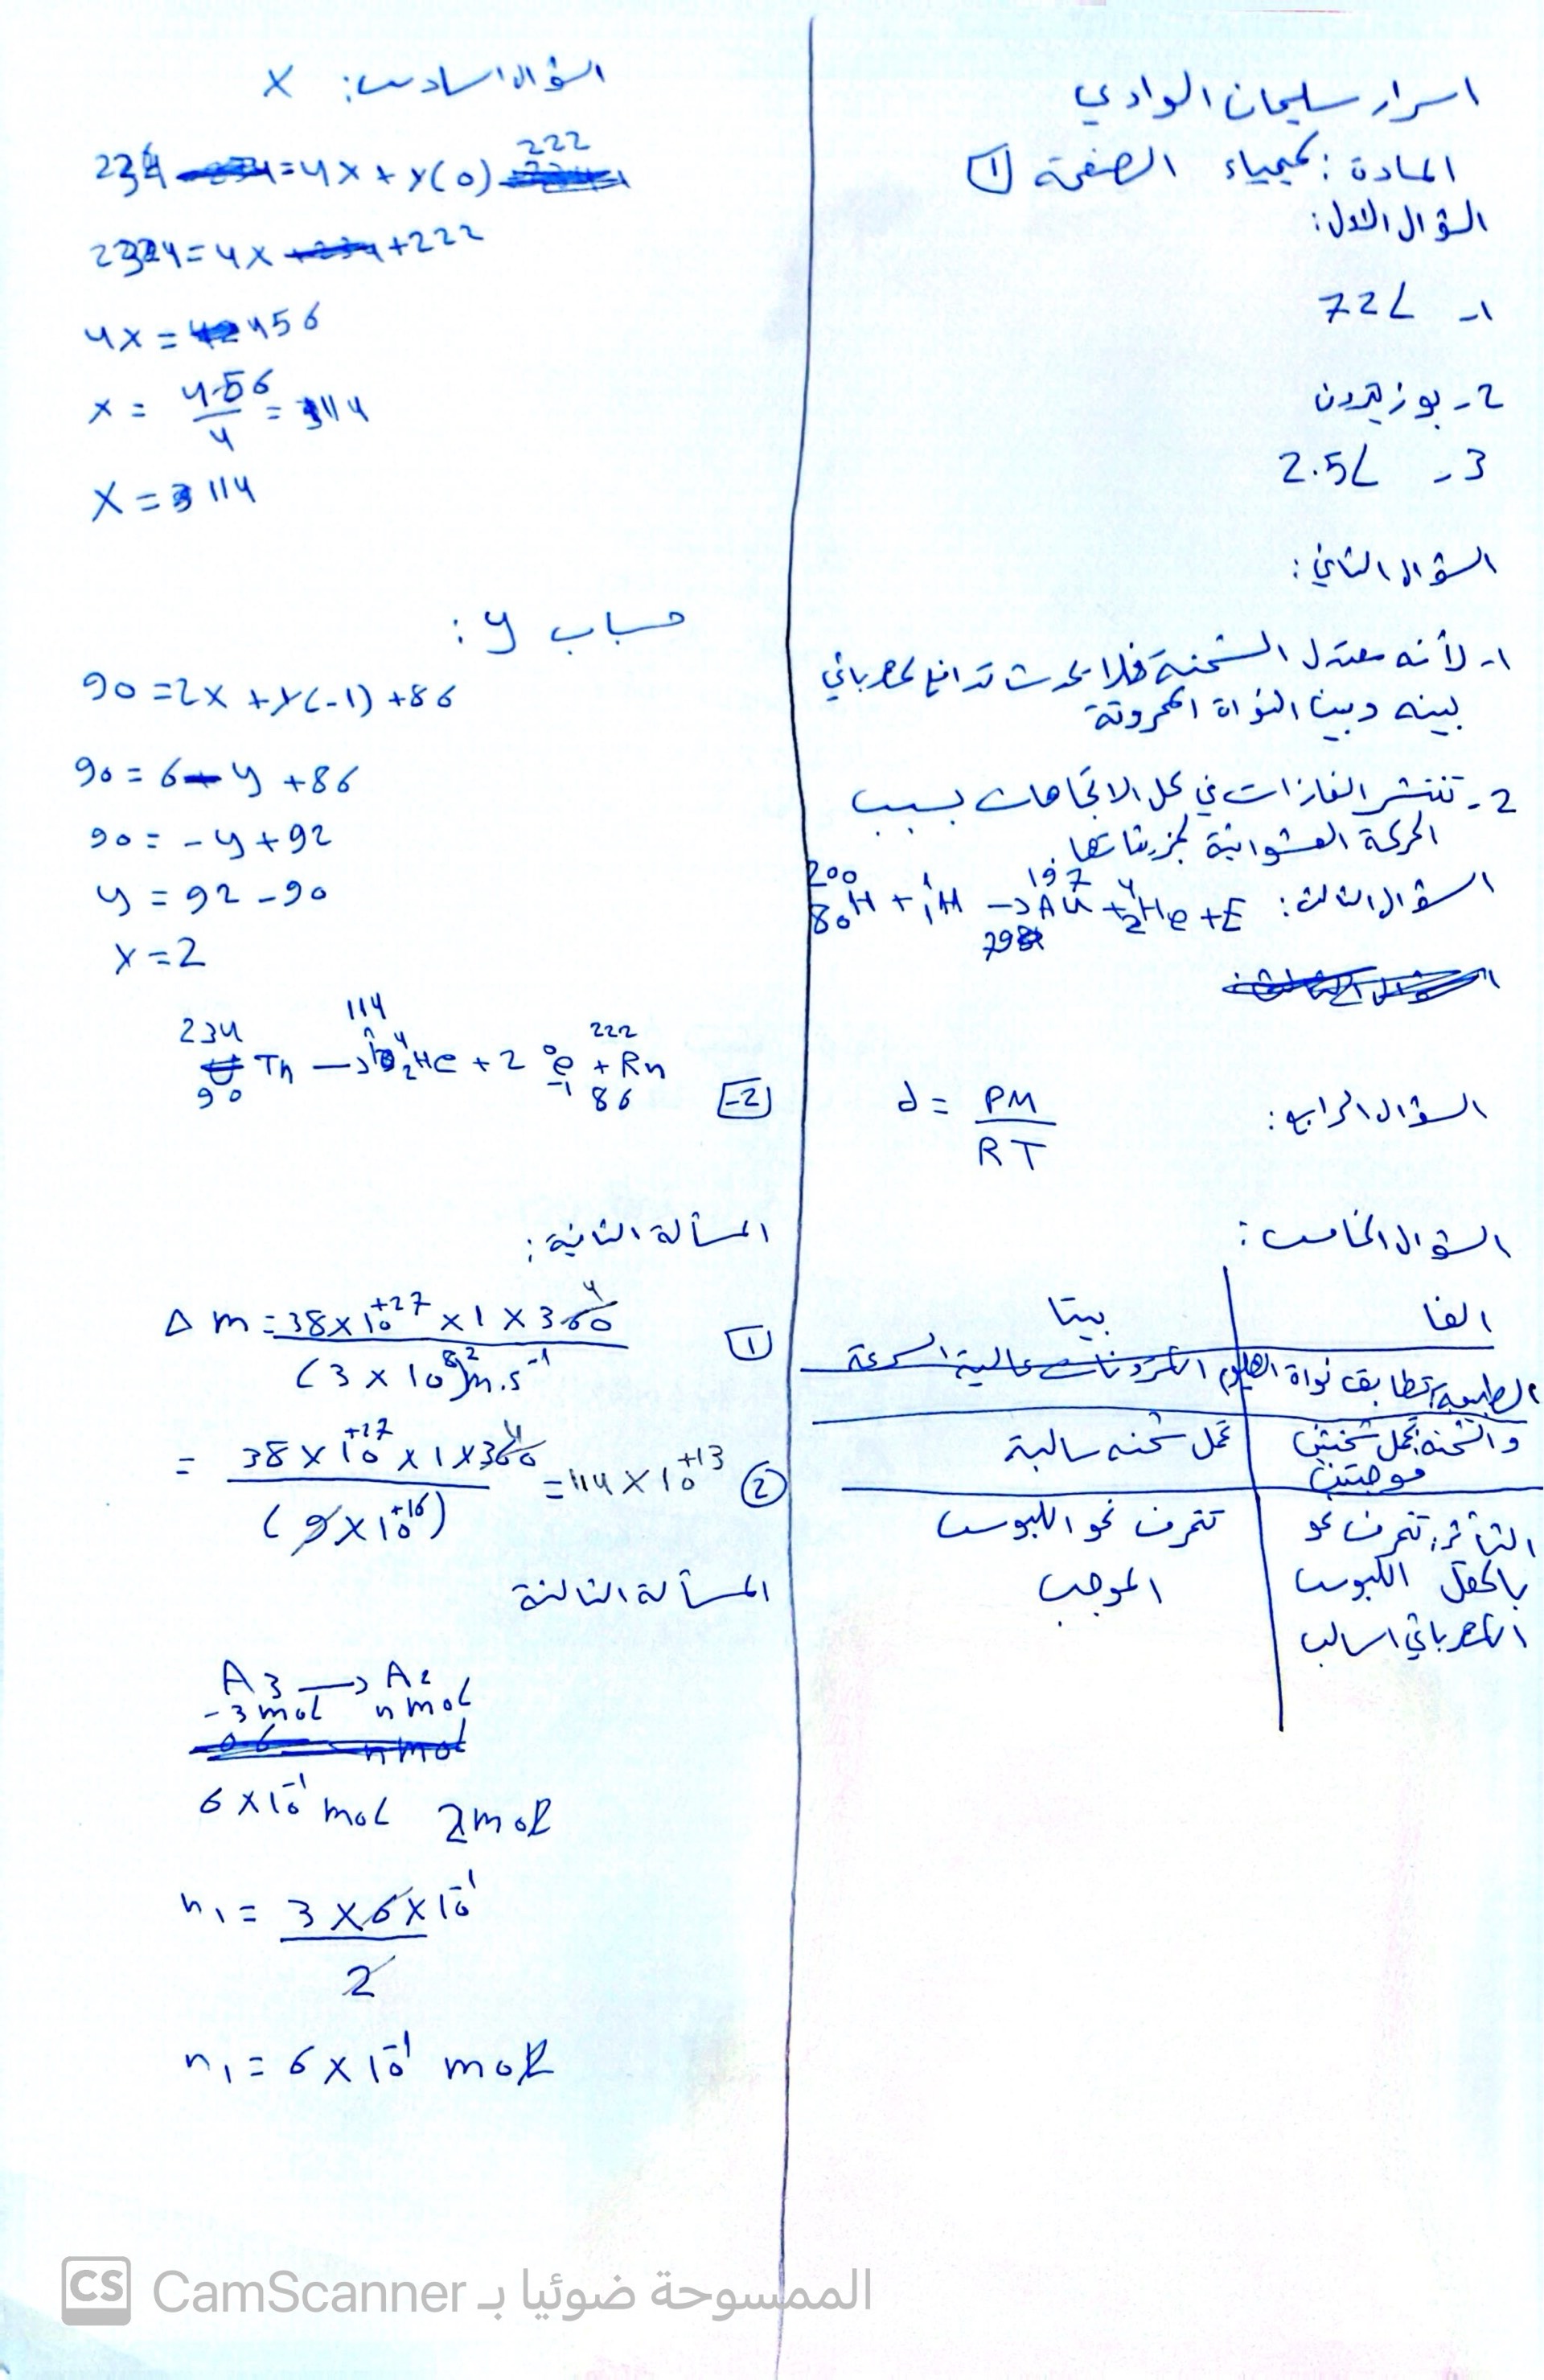 اسرار سليمان الوادي
المادة : كيمياء الصفحة 1
السؤال الاول:
1- 72L
2- بوزيترون
3- 2.5L
السؤال الثاني:
1- لأنه معتدل الشحنة فلا يحدث تدافع كهربائي
بينه وبين النواة المحروقة
2- تنتشر الغازات في كل الاتجاهات بسبب
الحركة العشوائية لجزيئاتها.
السؤال الثالث: ²⁰⁰₈₀H + ¹₁H → ¹⁹⁷₇₉Au + ⁴₂He + E
السؤال الرابع: d = PM / RT
السؤال الخامس:
الفا | بيتا
الطبيعة: تطابق نواة الهليوم | الكترونات عالية السرعة
والشحنة: تحمل شحنتين موجبتين | تحمل شحنه سالبة
التأثر بالحقل الكهربائي: تنحرف نحو اللبوس السالب | تنحرف نحو اللبوس الموجب
السؤال السادس: X
234 = 4x + y(0) 222
234 = 4x + 222
4x = 456
x = 456 / 4 = 114
x = 114
حساب y :
90 = 2x + y(-1) + 86
90 = 6 - y + 86
90 = - y + 92
y = 92 - 90
x = 2
²³⁴₉₀Th → 114 ⁴₂He + 2 ⁰₋₁e + ²²²₈₆Rn
-2
المسألة الثانية:
1 Δm = 38 × 10⁺²⁷ × 1 × 360 / (3 × 10⁸)² m.s⁻¹
= 38 × 10⁺²⁷ × 1 × 360 / (9 × 10⁺¹⁶) = 114 × 10⁺¹³ 2
المسألة الثالثة
A3 → A2
- 3 mol n mol
6 × 10⁻¹ mol 2 mol
n₁ = 3 × 6 × 10⁻¹ / 2
n₁ = 6 × 10⁻¹ mol
CS CamScanner الممسوحة ضوئيا بـ